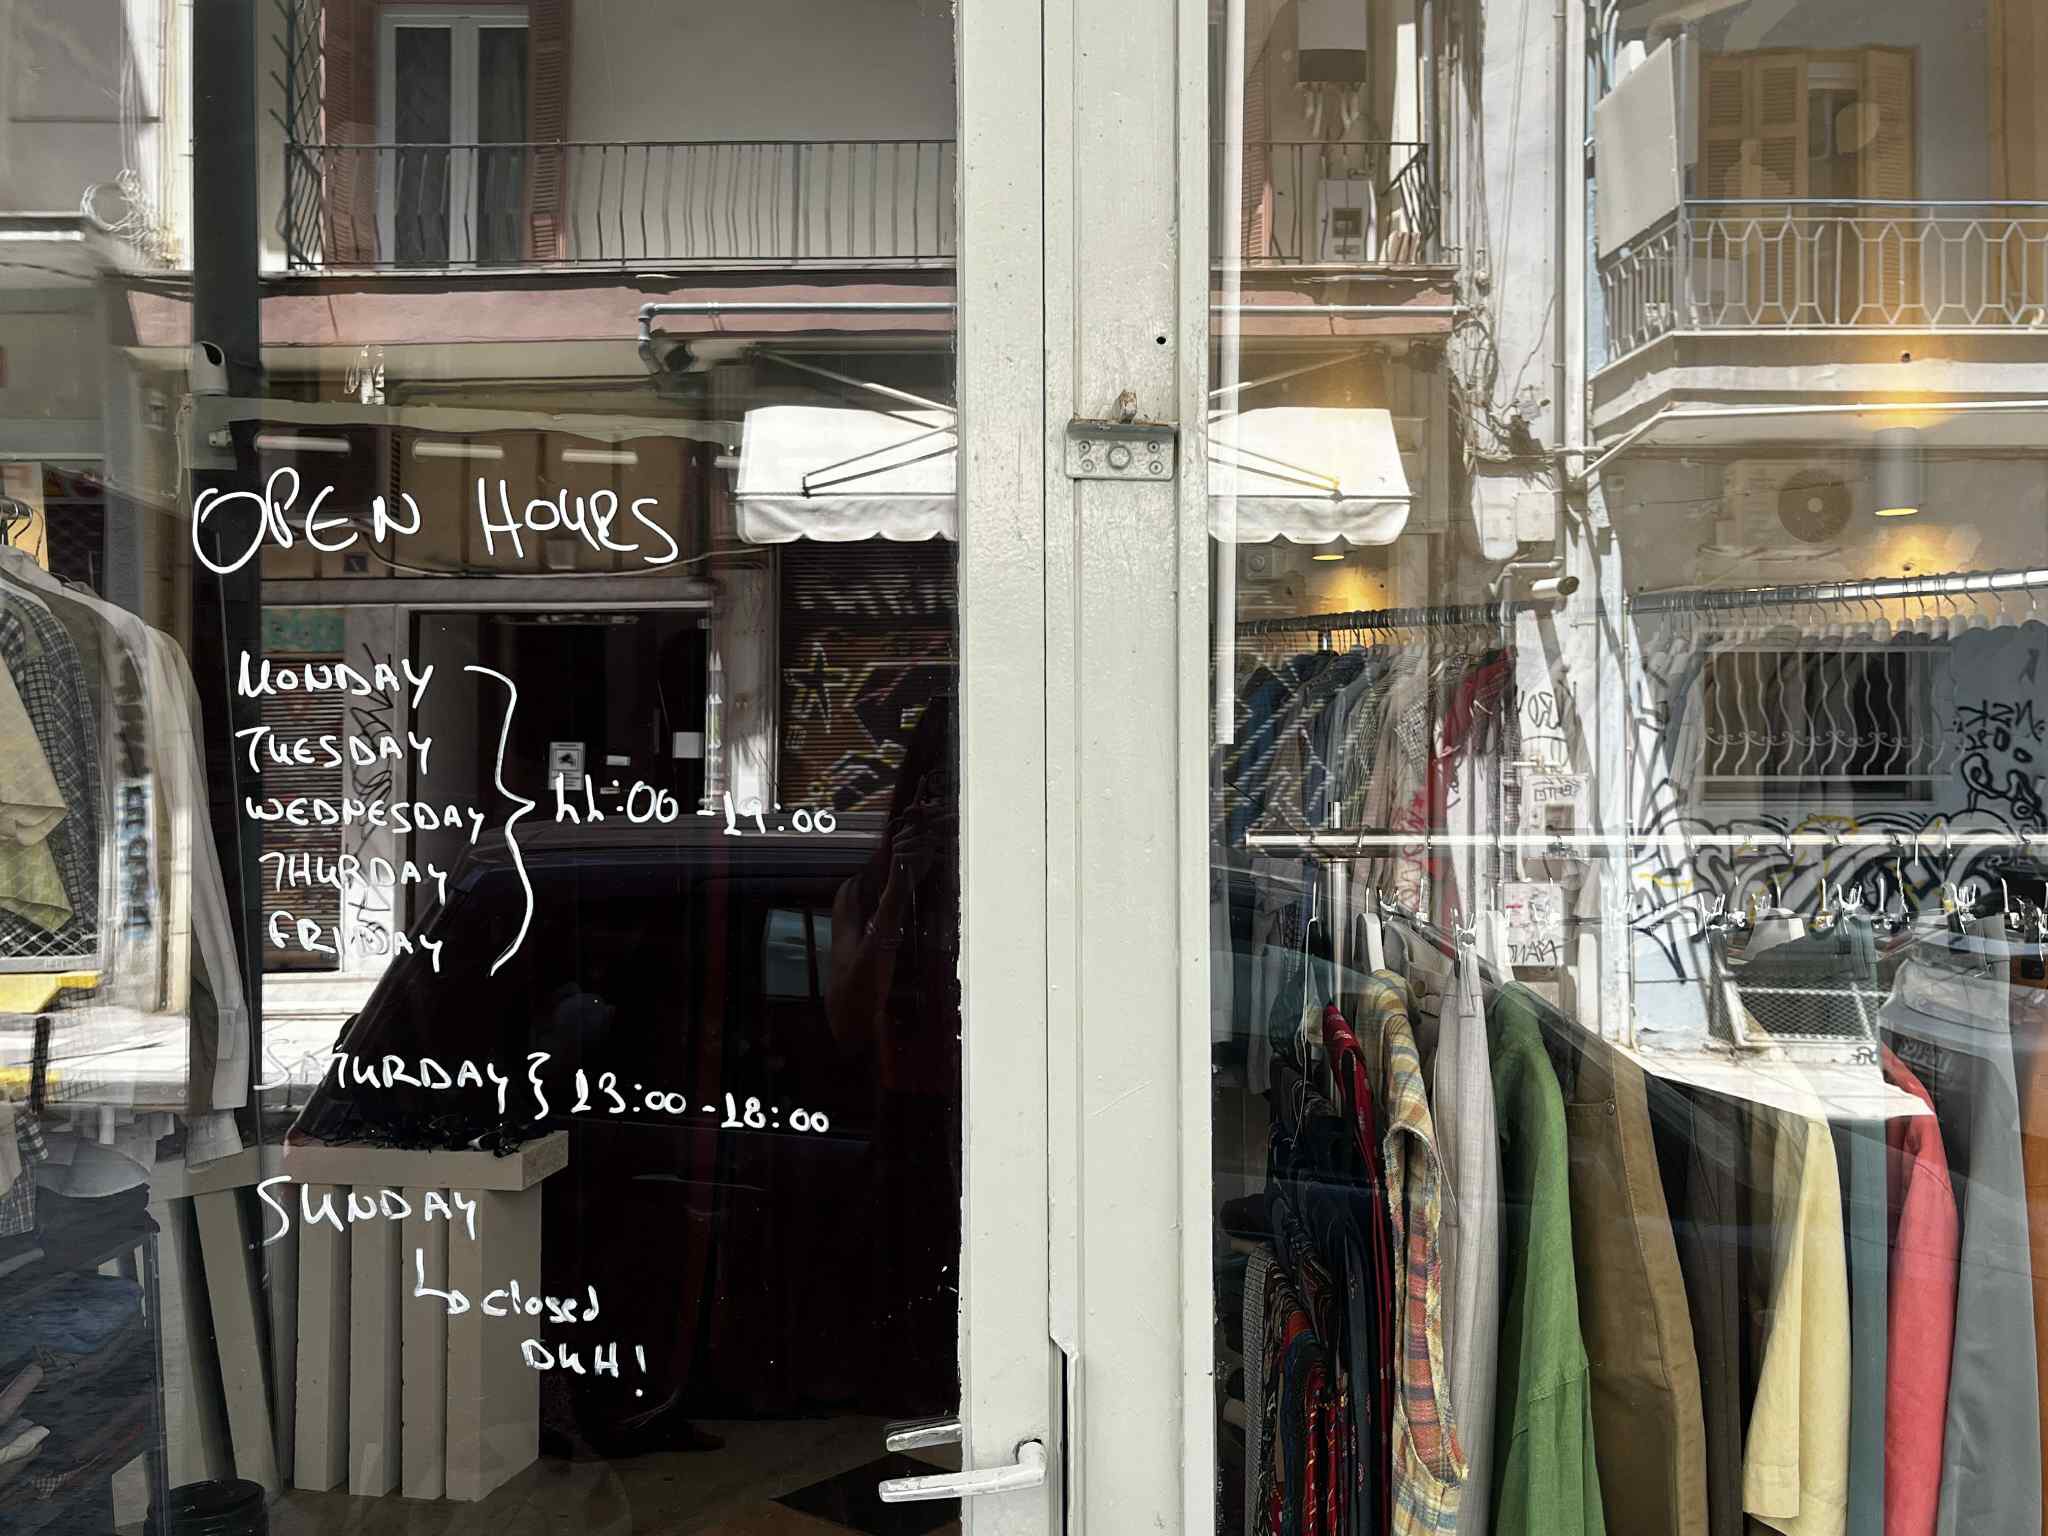 OPEN HOURS
MONDAY
TUESDAY
WEDNESDAY
THURDAY
FRIDAY
11:00 - 19:00
SATURDAY } 13:00 - 18:00
SUNDAY
↳ closed
DUH!